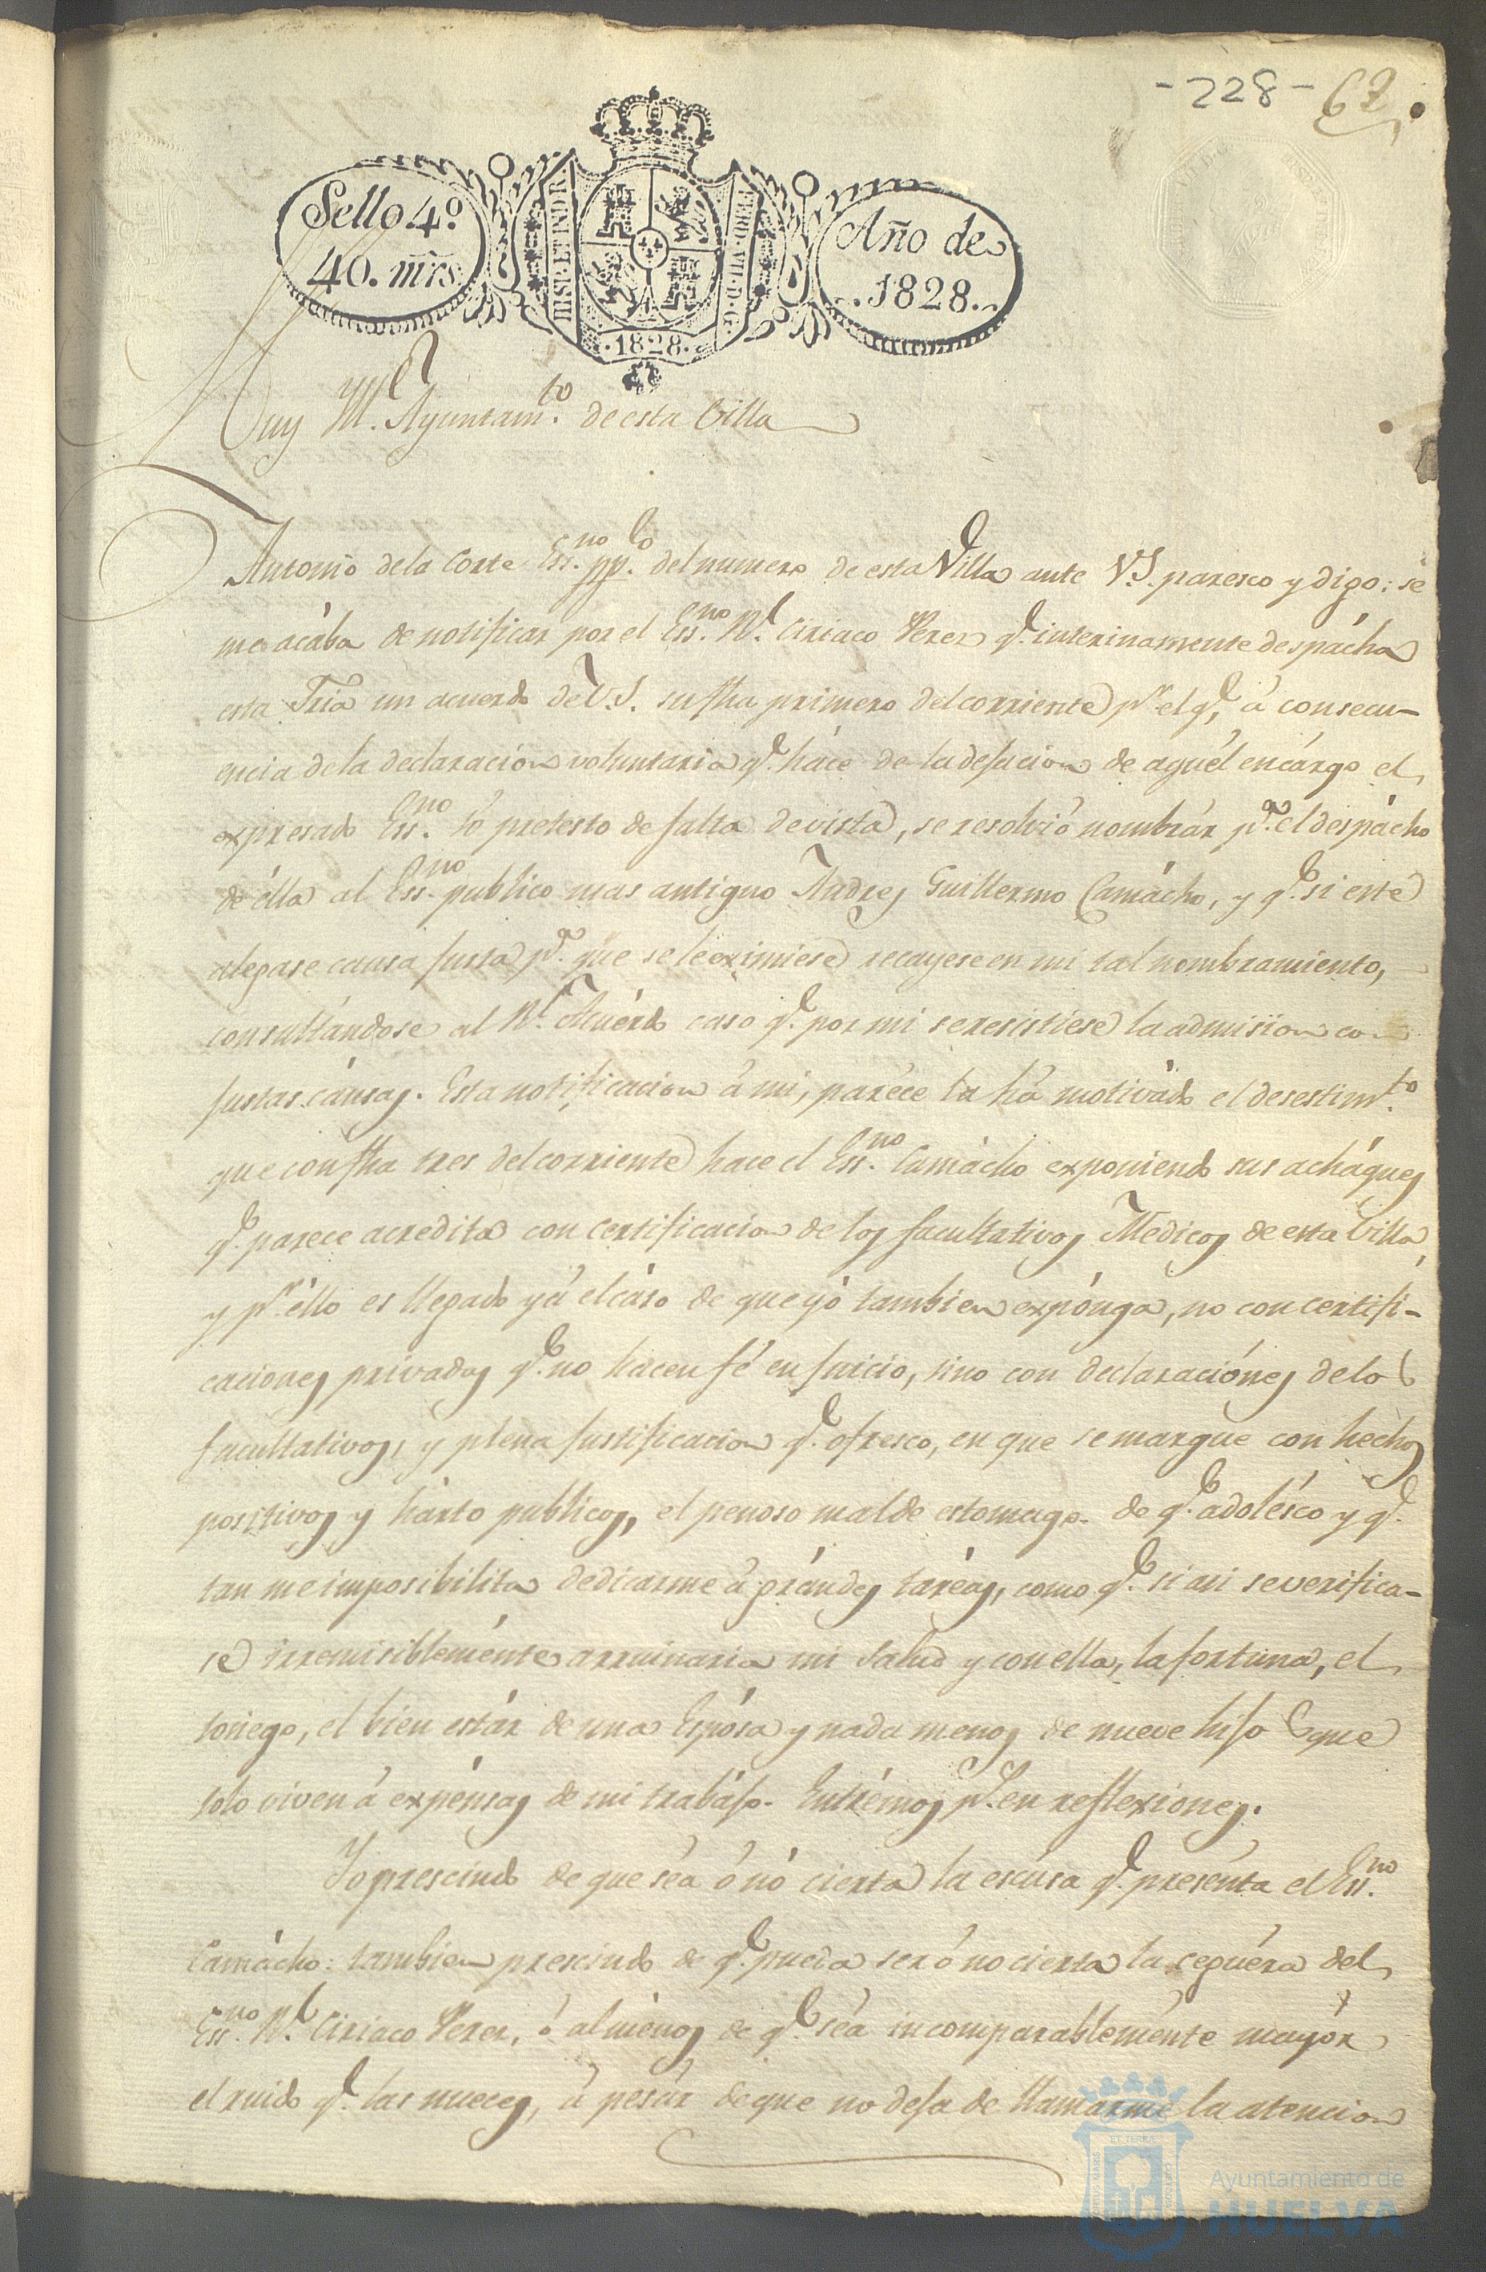 -228- 62.
Sello 4º
40. mrs.
HISP. ET IND. R.
FERD. VII. D. G.
.1828.
Año de
..1828..
Muy Ill.e Ayuntam.to de esta Villa
Antonio de la Corte Ess.no pp.co del numero de esta Villa ante V.S. paresco y digo: se
me acába de notificar por el Ess.no R.l Ciriaco Perez q.e interinamente despácha
esta Sria un acuerdo de V.S. su fha primero del corriente p.r el q.e, á consecu-
encia de la declaración voluntaria q.e háce de la dejacion de aquél encárgo el
expresado Ess.no só pretesto de falta de vista, se resolvió nombrár p.a el despácho
de élla al Ess.no publico mas antiguo Andres Guillermo Camácho, y q.e si este
alegase causa justa p.a que se le eximiese recayese en mi tal nombramiento,
consultándose al R.l Acuérdo caso q.e por mi se resistiese la admision con
justas cáusas. Esta notificacion á mi, paréce la há motivádo el desestim.to
que con fha tres del corriente hace el Ess.no Camácho exponiendo sus acháques
q.e parece acredita con certificacion de los facultativos Medicos de esta Villa,
y p.r éllo es llegado yá el cáso de que yó tambien expónga, no con certifi-
caciones privadas q.e no hacen fé en juicio, sino con declaraciónes de los
facultativos, y plena justificacion q.e ofresco, en que se marque con hechos
positivos y hárto publicos, el penoso mal de estomago de q.e adolésco y q.e
tan me imposibilita dedicarme á grándes taréas, como q.e si asi se verifica-
se irremisiblemente arruinaria mi salud y con ella, la fortuna, el
sosiego, el bien estár de una Espósa y nada menos de nueve hijos que
solo viven á expénsas de mi trabájo. Entrémos p.s en reflexiones.
Yo prescindo de que séa ó nó cierta la escúsa q.e presénta el Ess.no
Camácho: tambien prescindo de q.e pueda ser ó no cierta la ceguéra del
Ess.no R.l Ciriaco Perez, ó al ménos de q.e séa incomparableménte mayór
el ruido q.e las nueces, á pesár de que no deja de llamarme la atencion
Ayuntamiento de
HUELVA